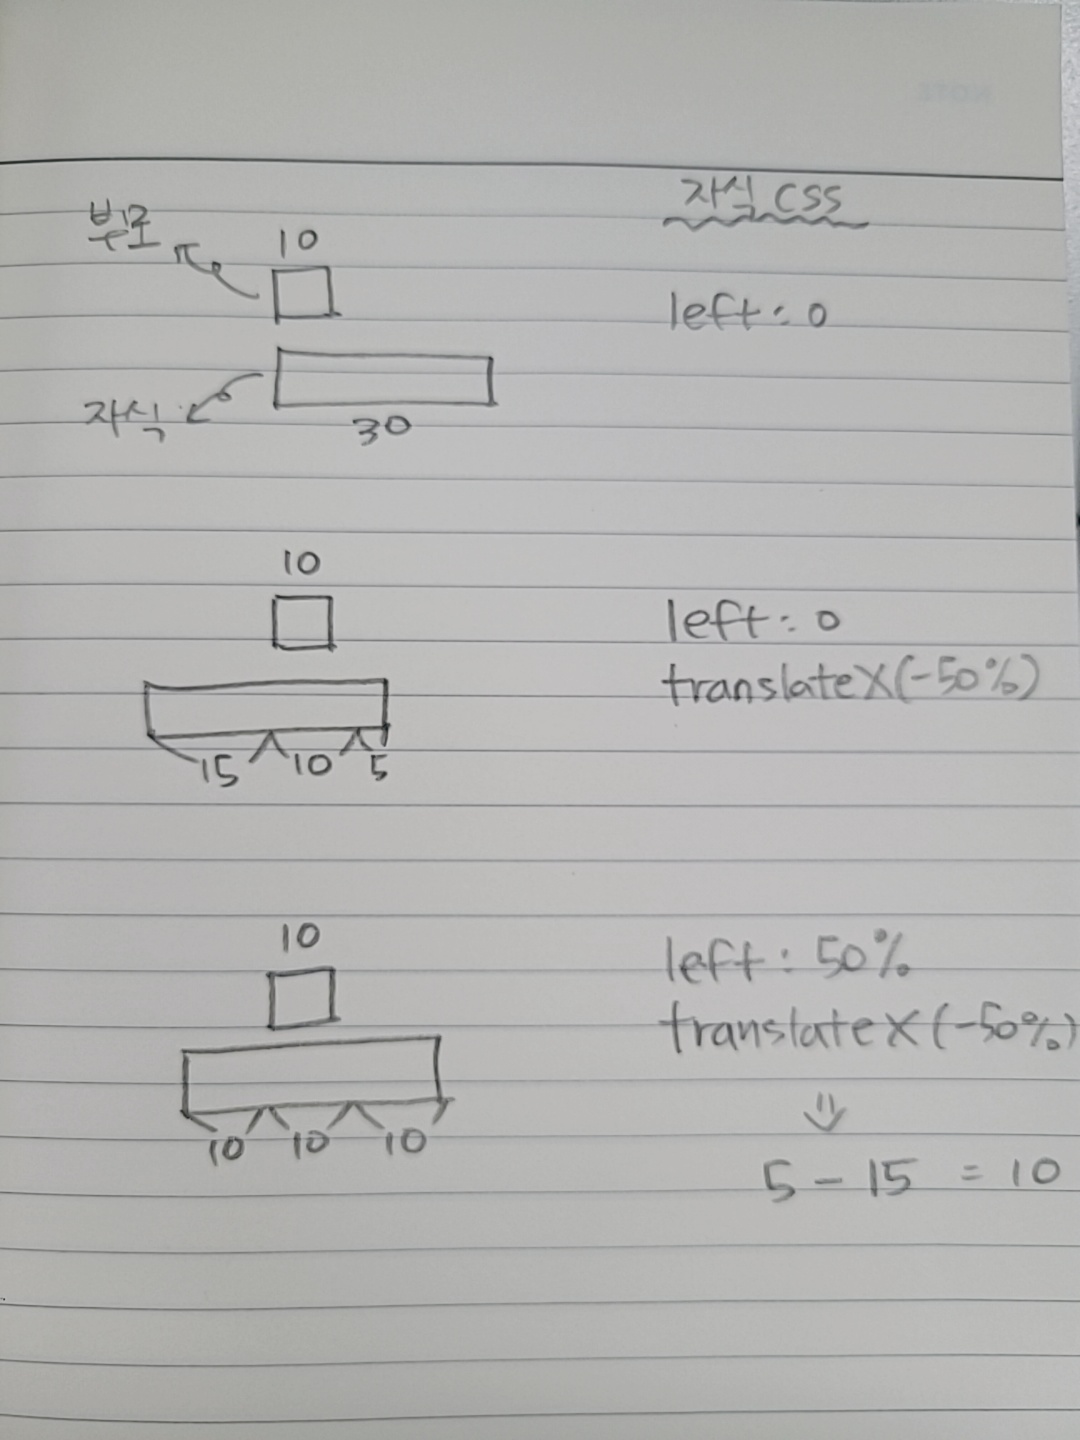 자식 CSS
부모
10
left : 0
자식
30
10
left : 0
translateX(-50%)
15 10 5
10
left : 50%
translateX(-50%)
10 10 10
⇓
5 - 15 = 10